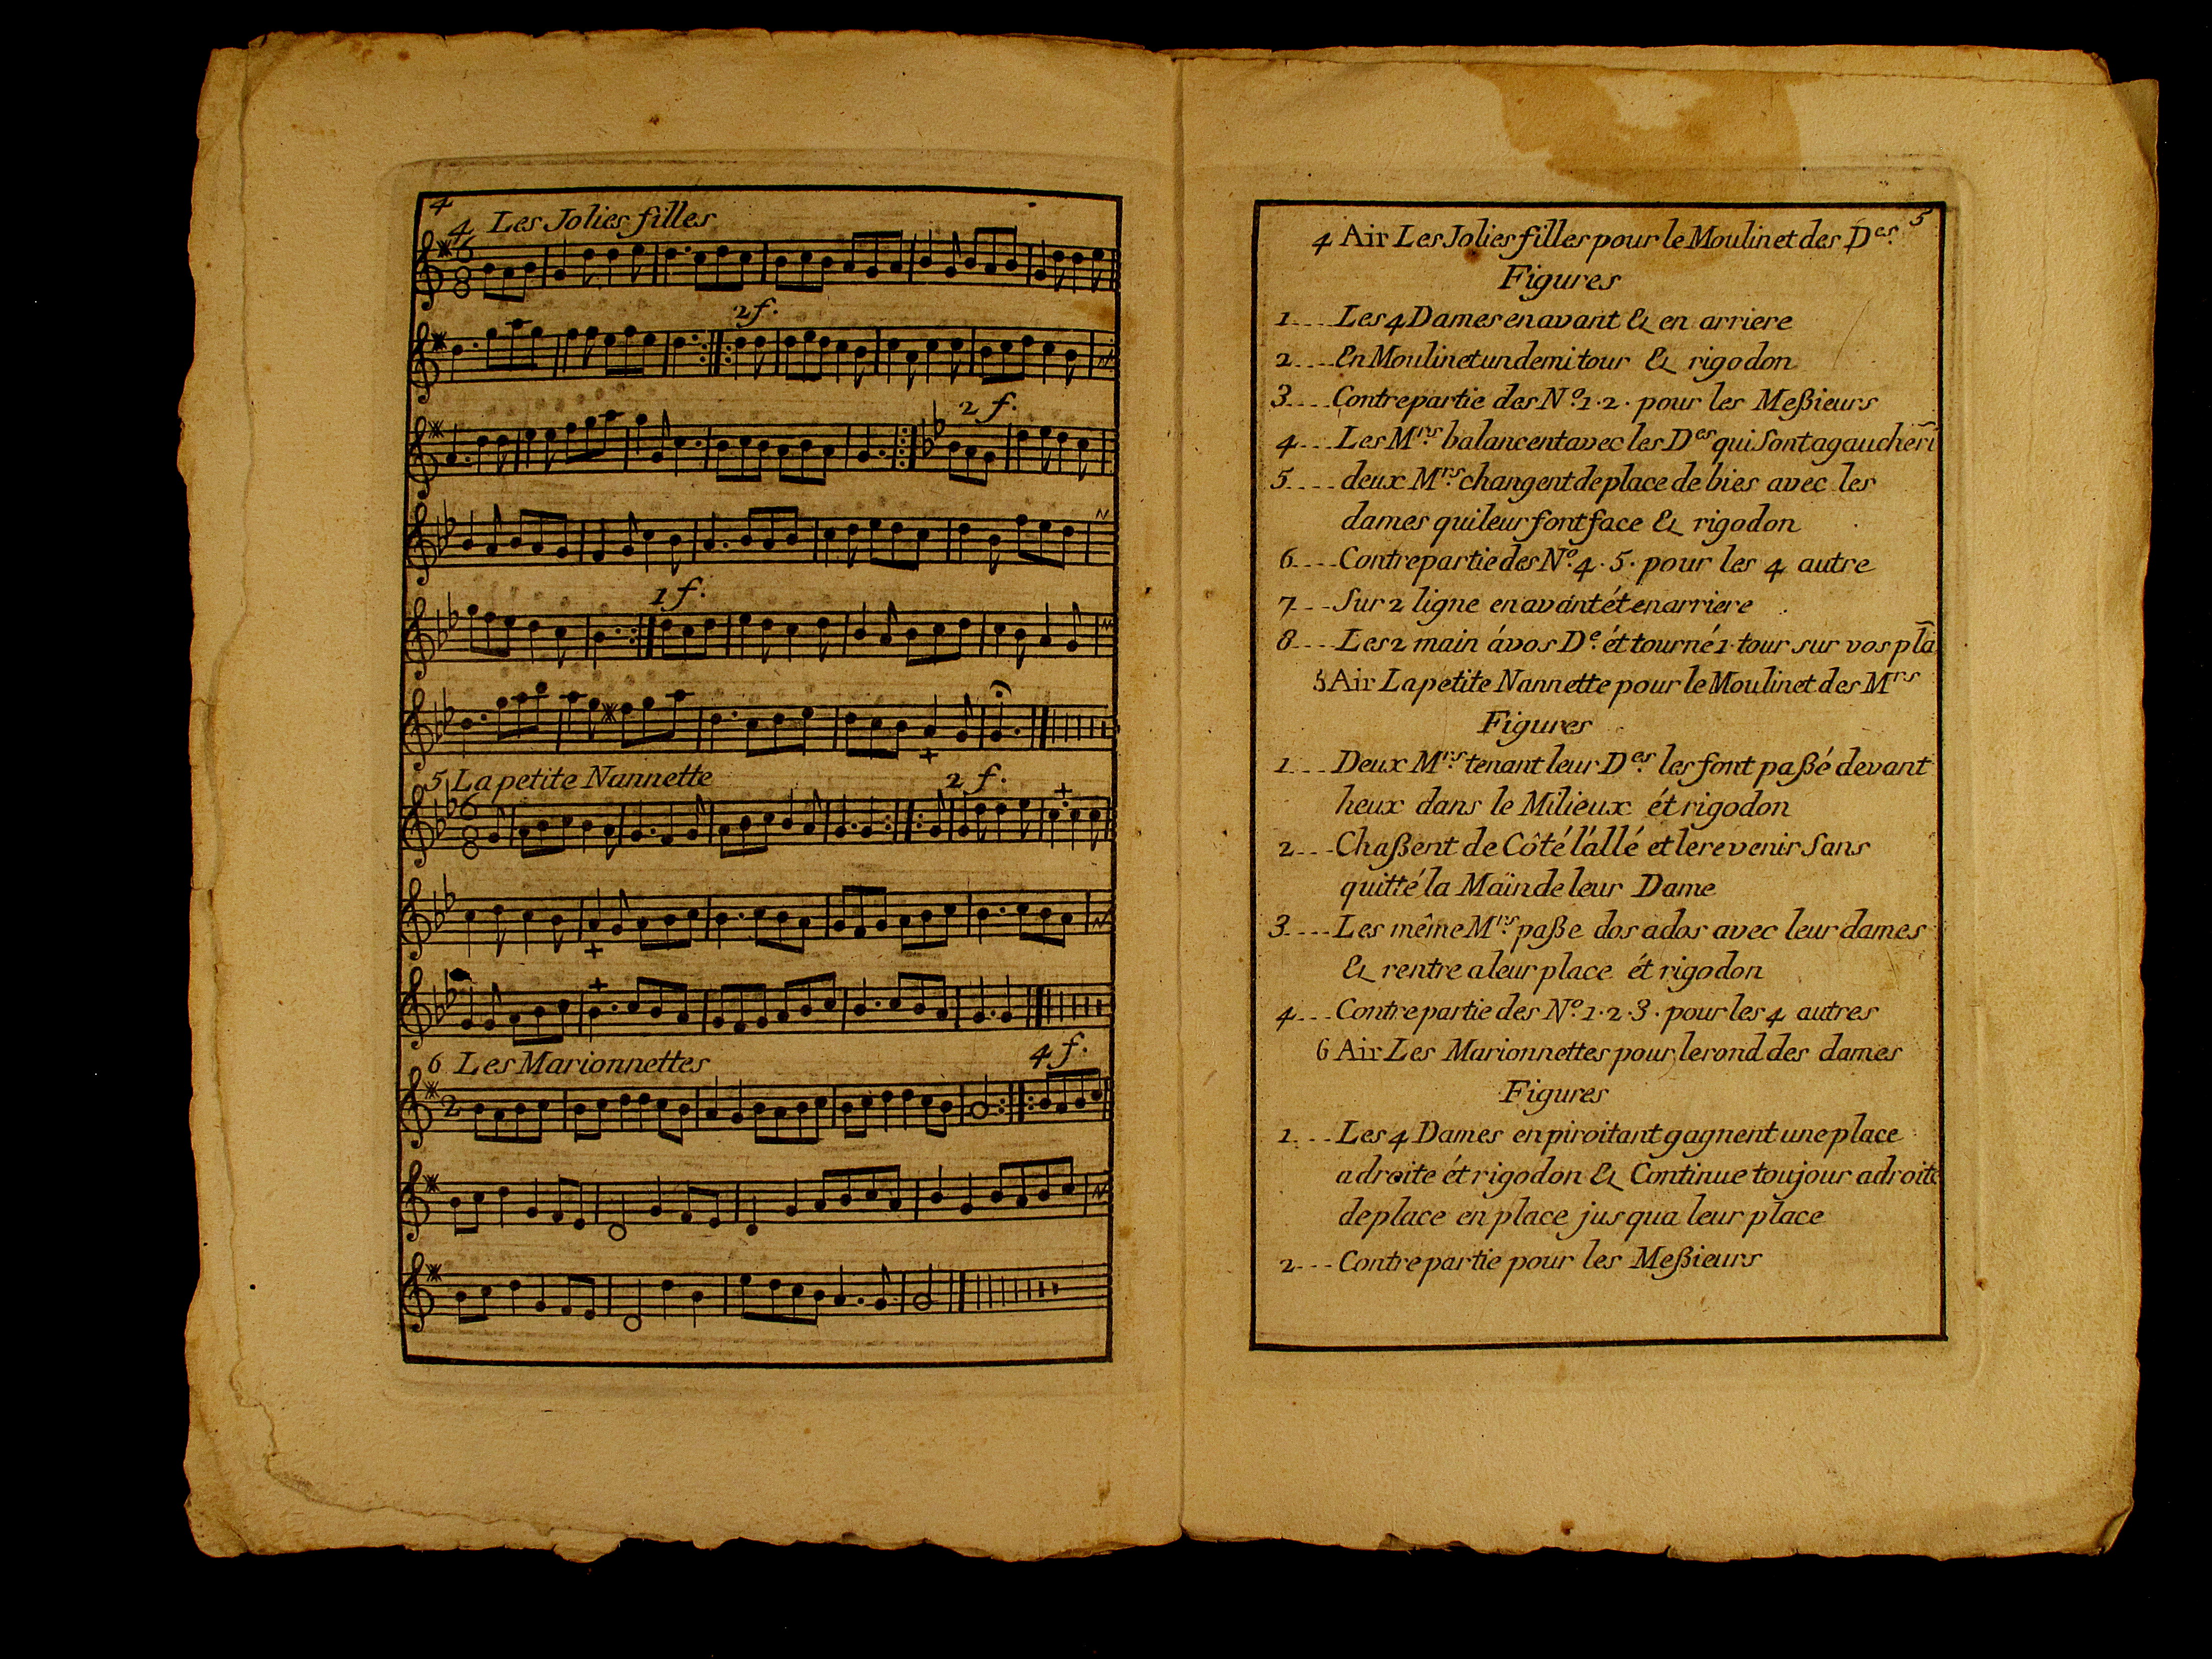 4
4 Les Jolies filles
2 f.
2 f.
1 f.
5 La petite Nannette
2 f.
6 Les Marionnettes
4 f.
5
4 Air Les Jolies filles pour le Moulinet des Des.
Figures
1.... Les 4 Dames en avant & en arriere
2.... En Moulinet un demi tour & rigodon
3.... Contrepartie des No. 1. 2. pour les Meßieurs
4... Les Mrs. balancent avec les Des qui Sont a gauche
5.... deux Mrs. changent de place de bies avec les
dames qui leur font face & rigodon
6.... Contrepartie des No. 4. 5. pour les 4 autre
7... Sur 2 ligne en avant ét en arriere
8.... Les 2 main á vos De. ét tourné 1. tour sur vos pla
5 Air La petite Nannette pour le Moulinet des Mrs
Figures
1.... Deux Mrs. tenant leur Des. les font paßé devant
heux dans le Milieux ét rigodon
2... Chaßent de Côté l'állé et le revenir Sans
quitté la Main de leur Dame
3.... Les même Mrs. paße dos a dos avec leur dames
& rentre a leur place ét rigodon
4... Contrepartie des No. 1. 2. 3. pour les 4 autres
6 Air Les Marionnettes pour le rond des dames
Figures
1... Les 4 Dames en piroitant gagnent une place
a droite ét rigodon & Continue toujour a droite
de place en place jusqua leur place
2... Contrepartie pour les Meßieurs